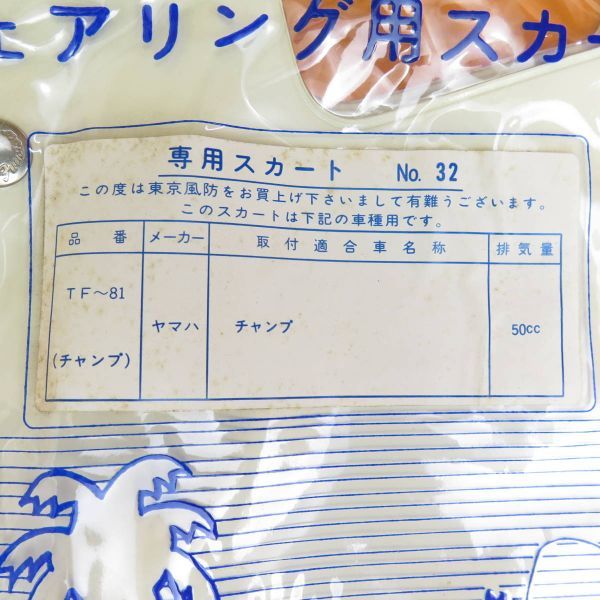 ェアリング用スカー
専用スカート No. 32
この度は東京風防をお買上げ下さいまして有難うございます。
このスカートは下記の車種用です。
品番 メーカー 取付適合車名称 排気量
TF〜81
ヤマハ チャンプ 50cc
(チャンプ)